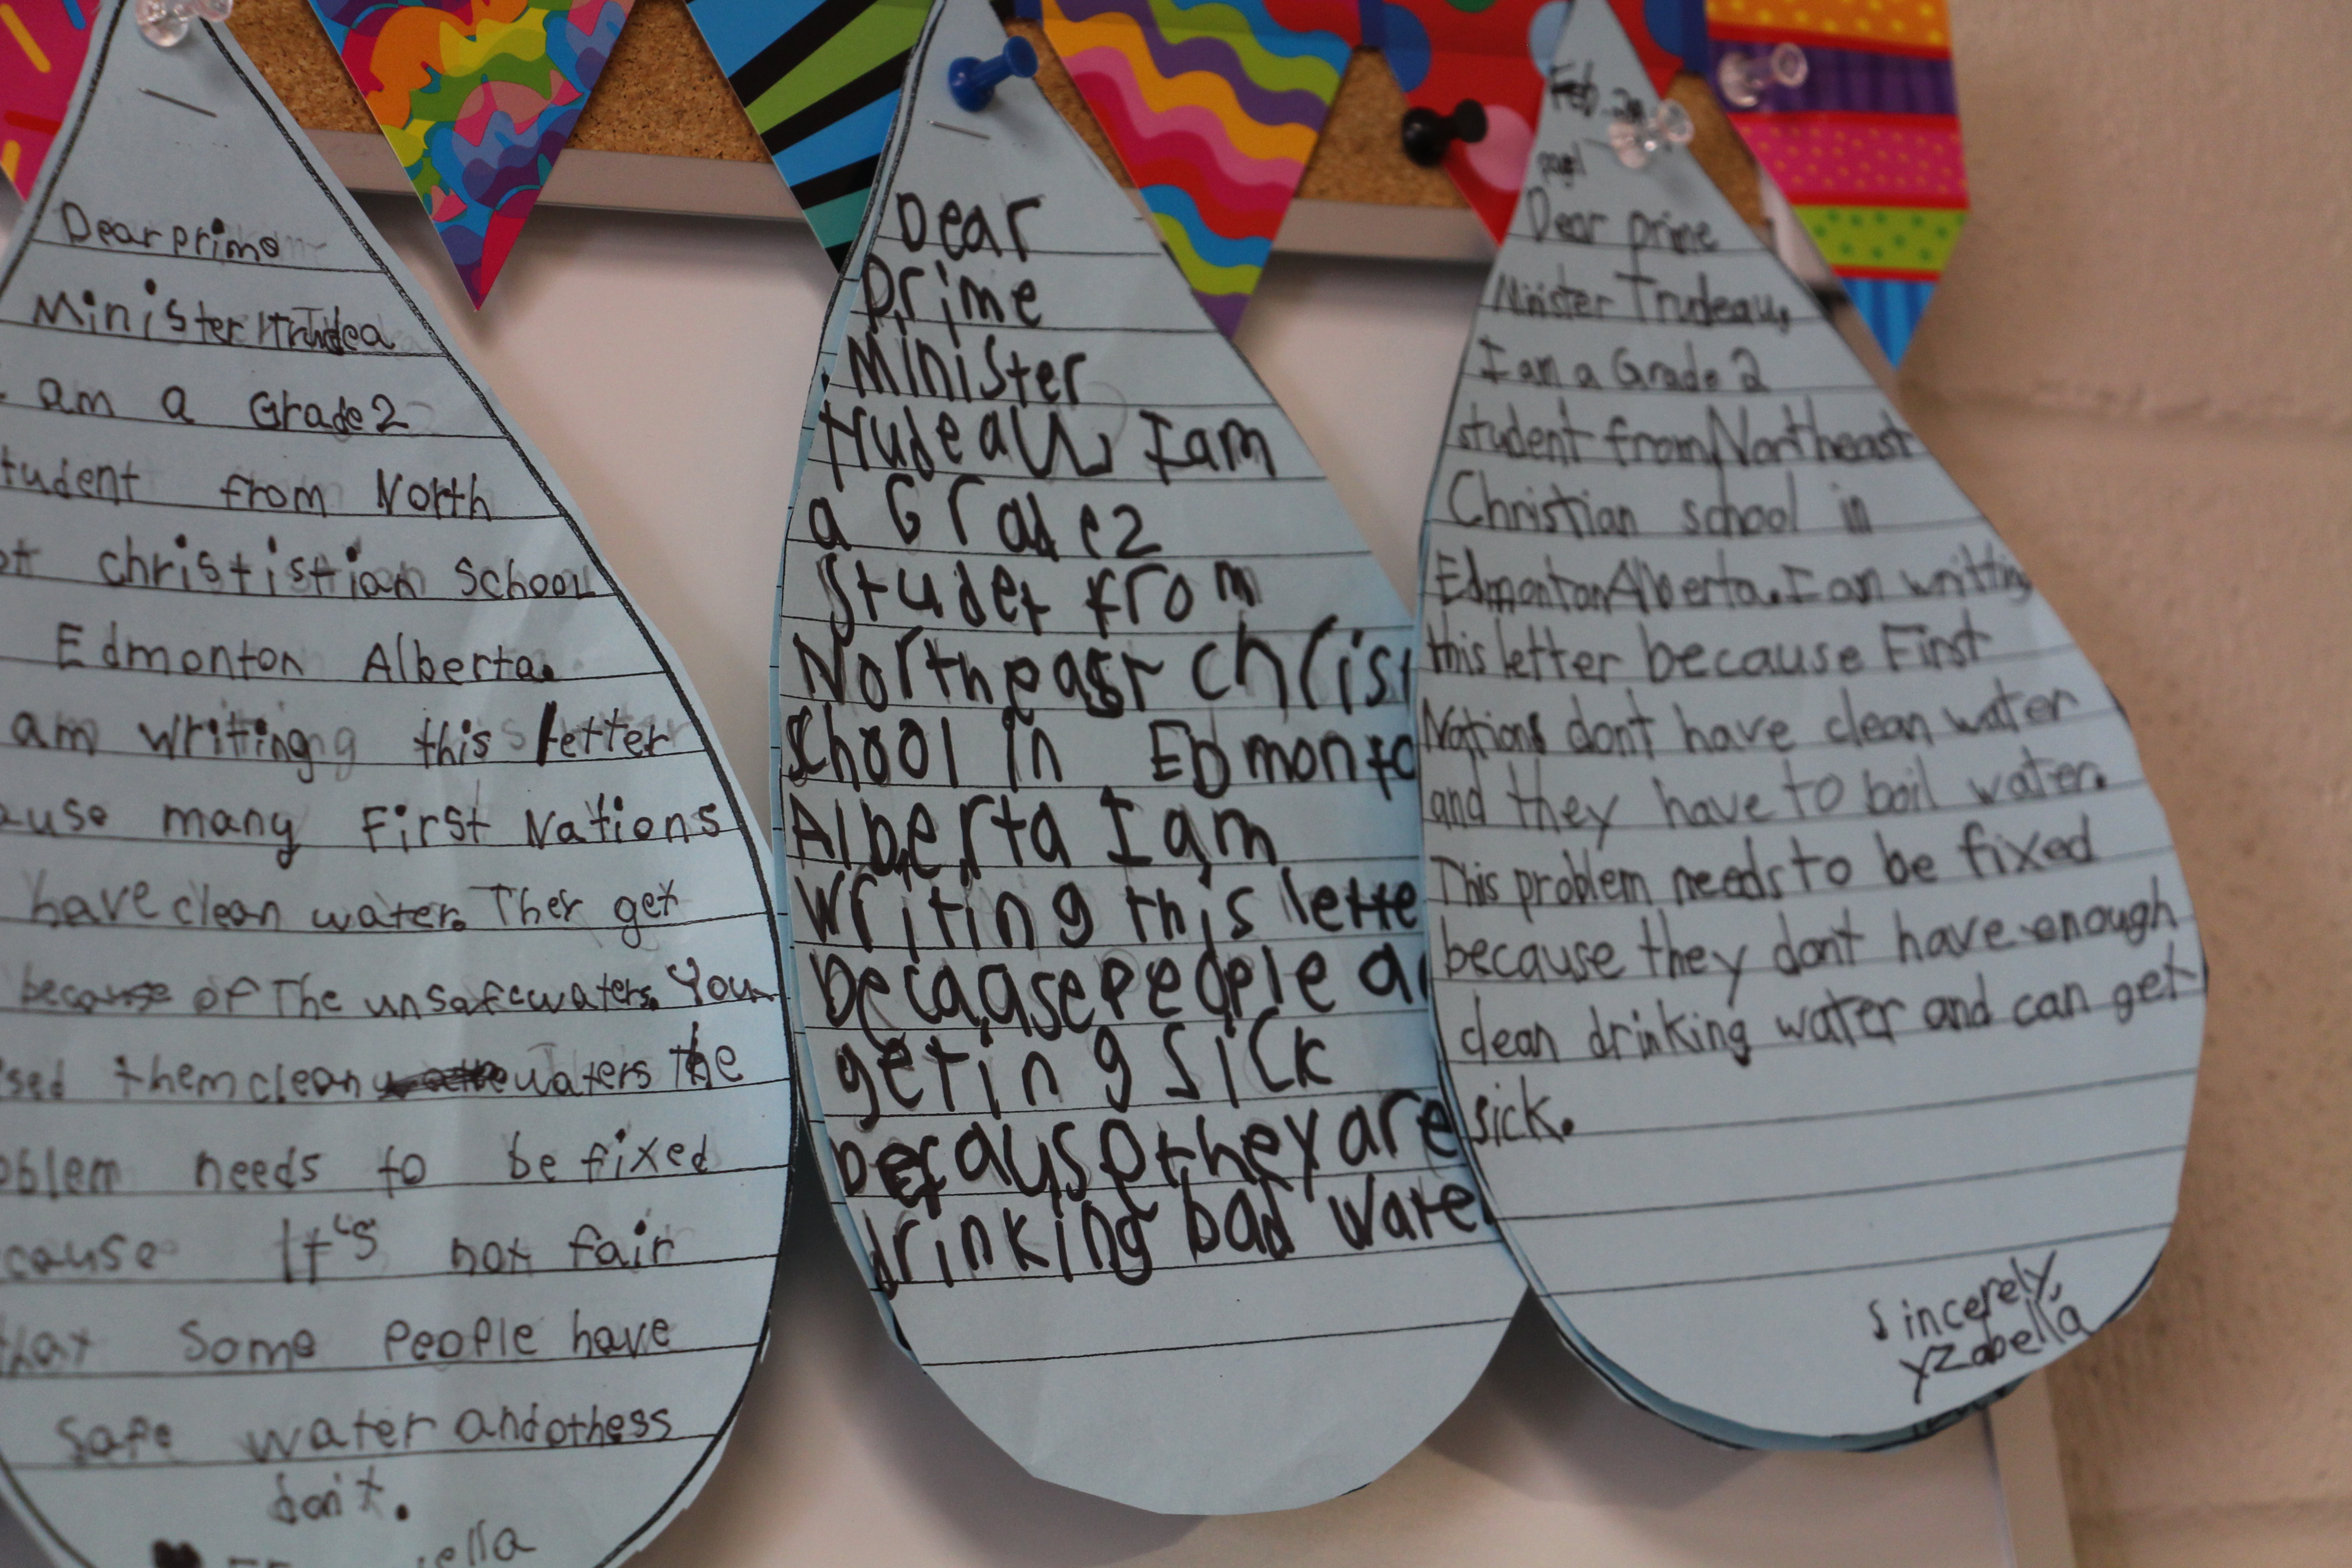 Dear prime
Minister Trudea
am a Grade 2
tudent from North
christistian School
Edmonton Alberta.
am writing this letter
ause many First Nations
have clean water. Ther get
because of The unsafe waters. You
sed them clean waters the
oblem needs to be fixed
cause It's not fair
that Some People have
Safe water and othess
don't.
ella
Dear
Prime
Minister
trudeau, I am
a Grade 2
Studet from
Northeast Christ
School in Edmonto
Alberta I am
writing this lette
becaase people a
geting sick
because they are
drinking bad wate
Feb.
Dear prime
Minister Trudeau,
I am a Grade 2
student from Northeast
Christian school in
Edmonton Alberta. I am writting
this letter because First
Nations dont have clean water
and they have to boil water.
This problem needs to be fixed
because they don't have enough
clean drinking water and can get
sick.
Sincerely,
Yzabella